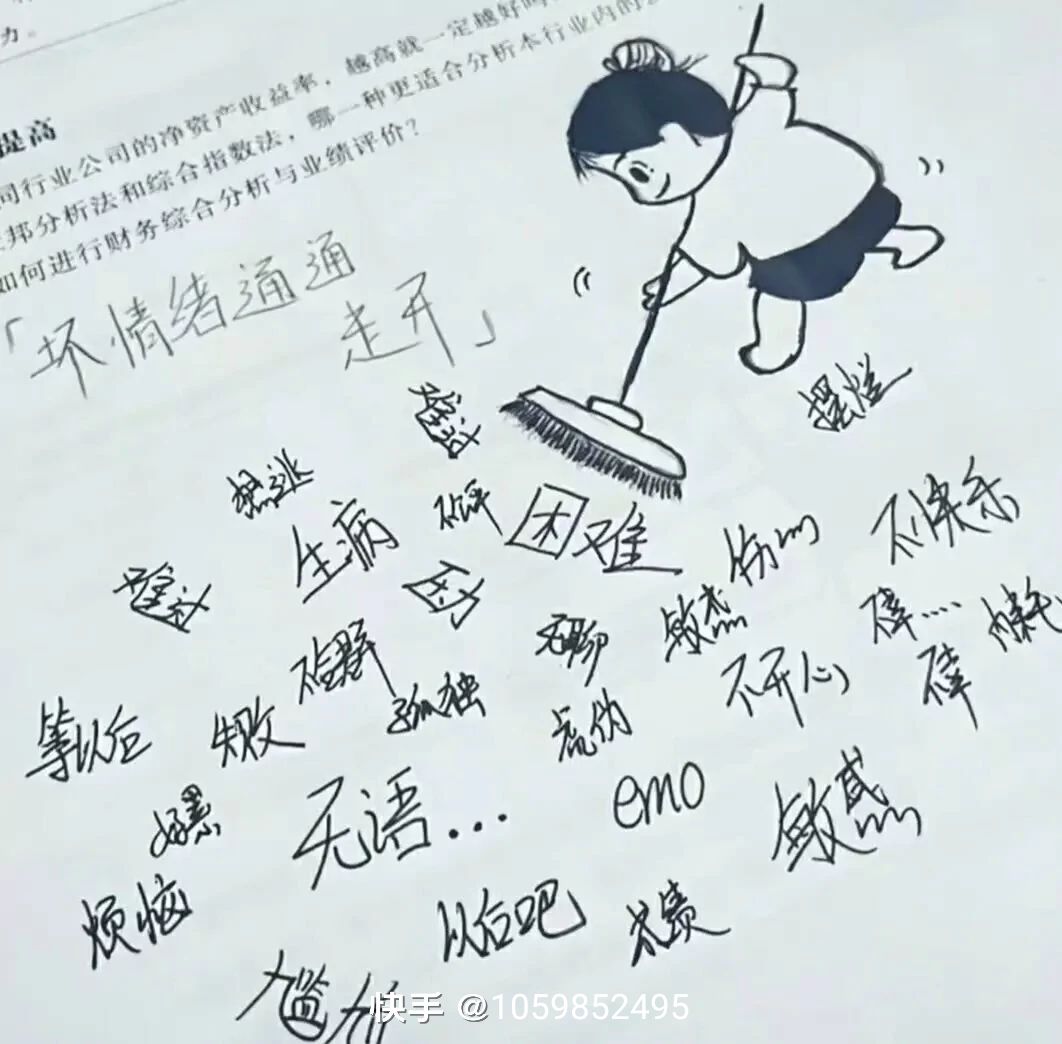 力。
提高
同行业公司的净资产收益率，越高就一定越好吗
邦分析法和综合指数法，哪一种更适合分析本行业内的
如何进行财务综合分析与业绩评价？
「坏情绪通通
走开」
难过
摆烂
想逃
生病
困难
伤心
不快乐
难过
压力
无聊
敏感
碎....
孤独
不开心
碎
等以后
失败
虚伪
好累
无语...
emo
敏感
烦恼
以后吧
尴尬
快手 @1059852495